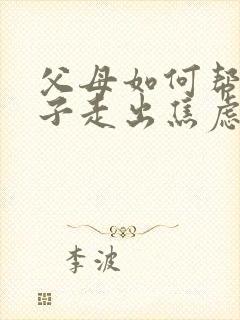 父母如何帮
子走出焦虑
李波